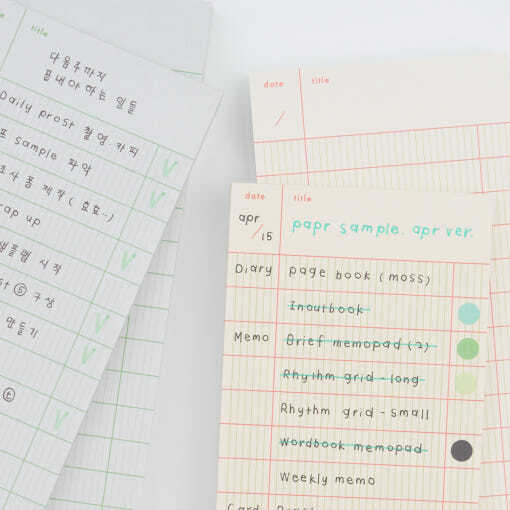 title
다음주까지
끝내야 하는 일들
Daily prost 촬영. 카피
sample 파악
폼 제작 (효효..)
wrap up
시작
⑤ 구상
만들기
date title
/
date title
apr / 15 papr sample. apr ver.
Diary page book (moss)
Inoutbook
Memo Brief memopad (2)
Rhythm grid - long
Rhythm grid - small
Wordbook memopad
Weekly memo